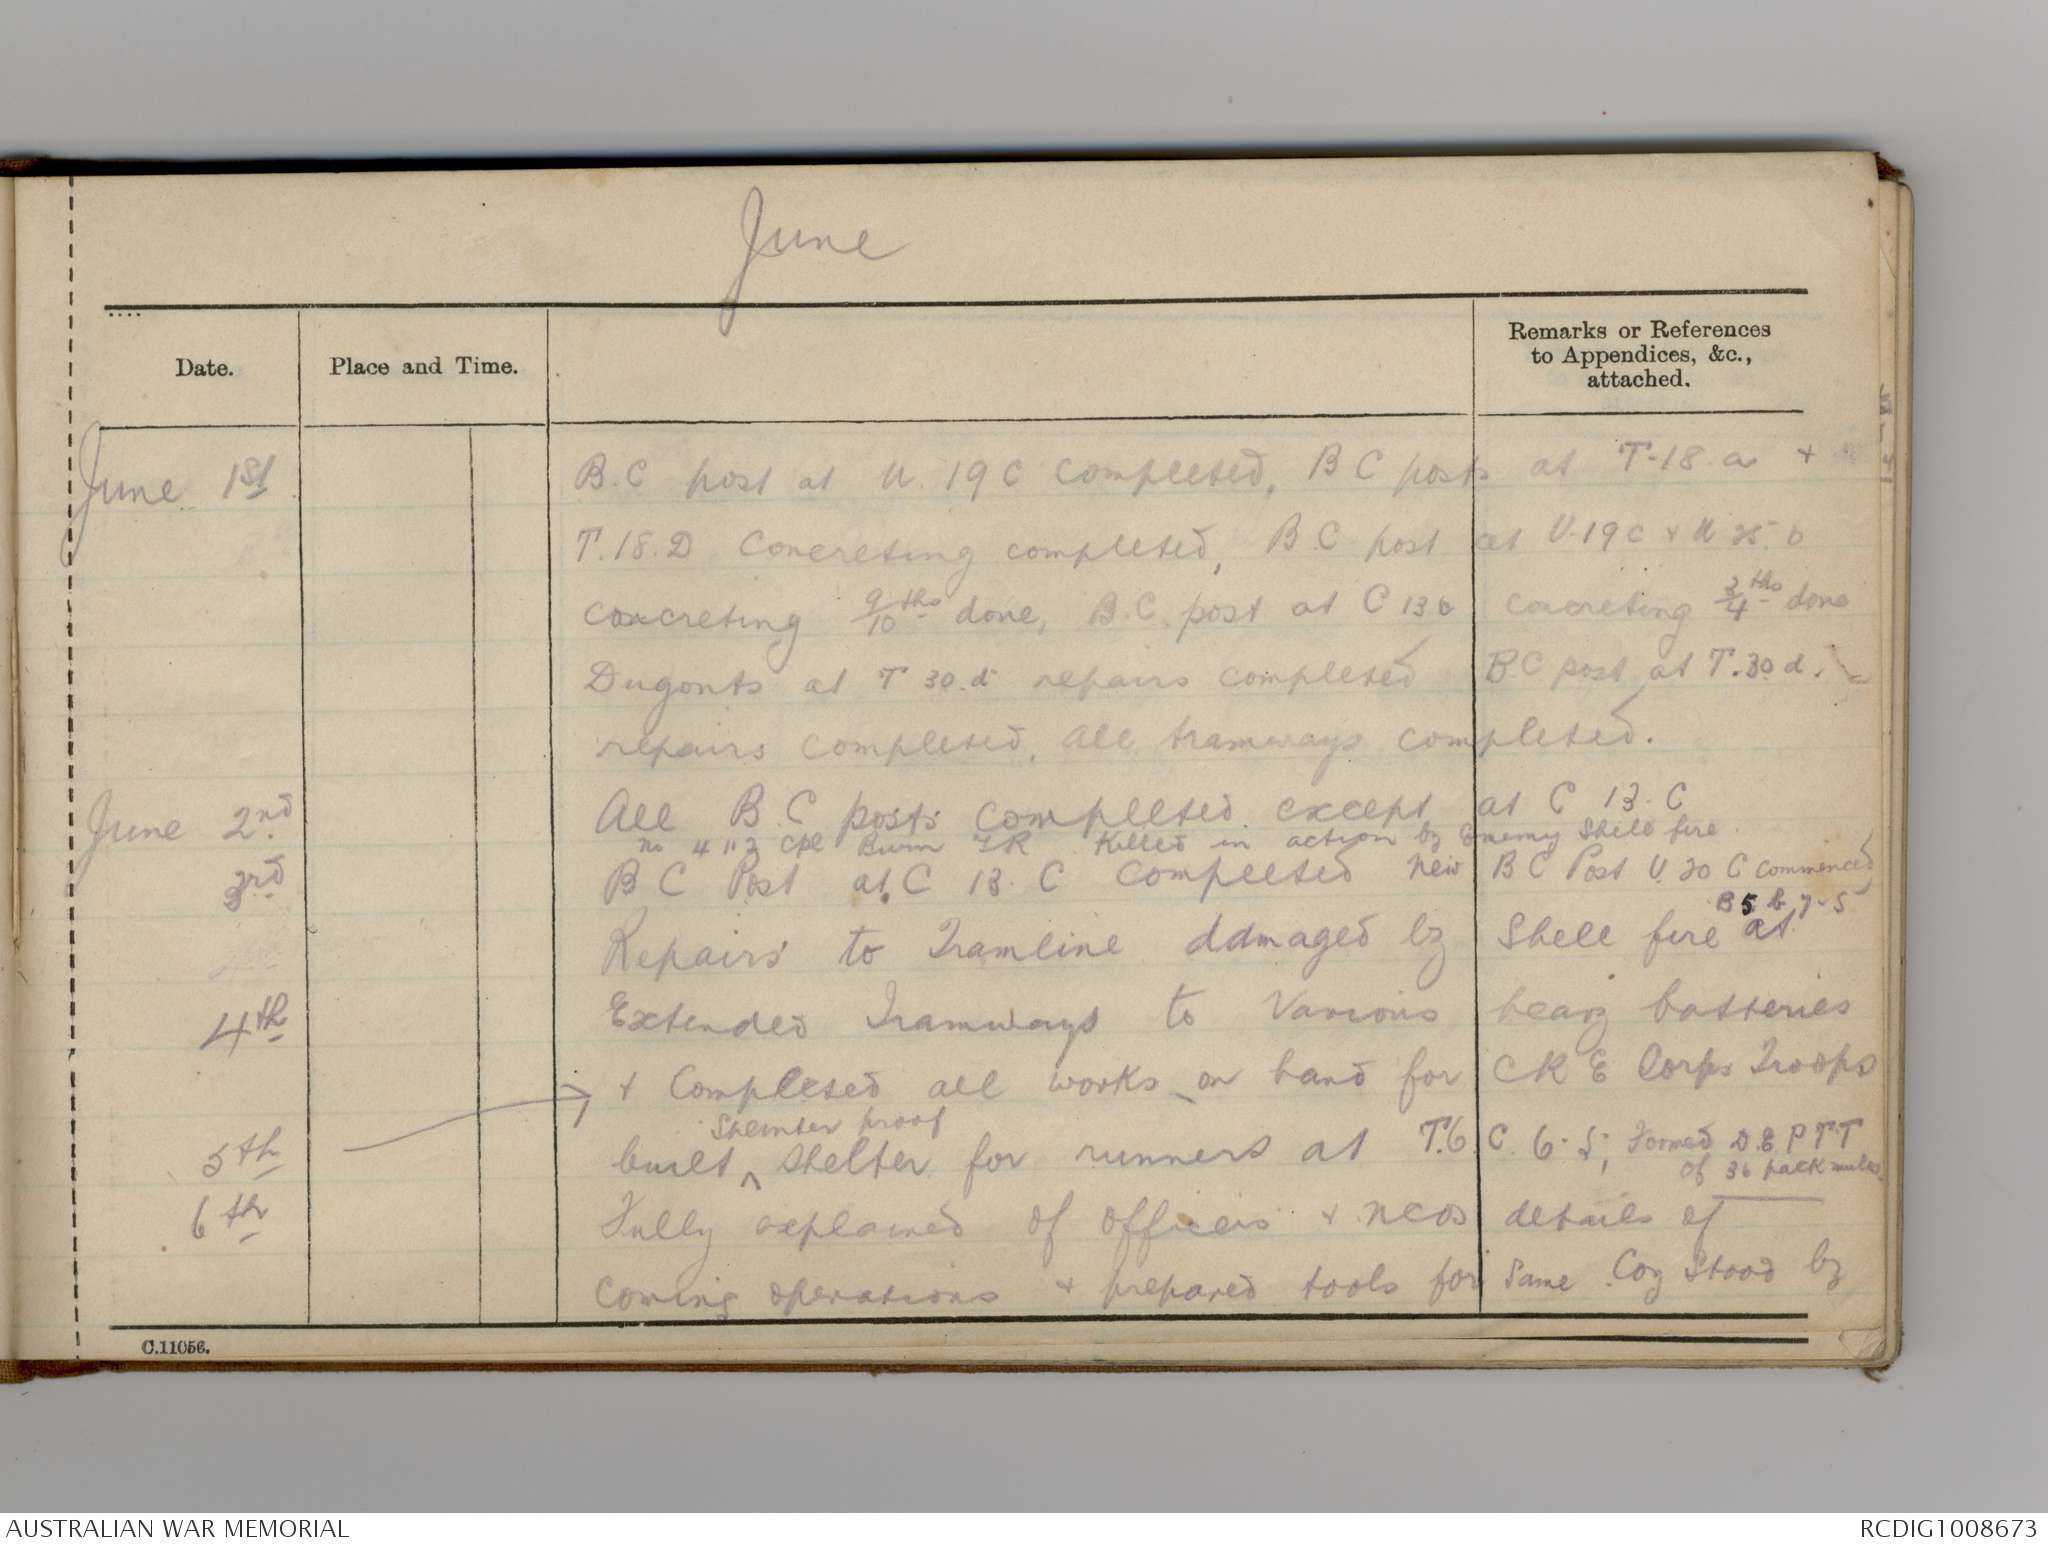 June
Date.
Place and Time.
Remarks or References
to Appendices, &c.,
attached.
June 1st
B.C post at U. 19 C completed, B C posts at T-18.a +
T.18.D Concreting completed, B.C post at U.19 c + U 25 b
concreting 9/10ths done, B.C. post at C 13 b concreting 3/4ths done
Dugouts at T 30.d repairs completed B C post at T.30 d.
repairs completed. All tramways completed.
June 2nd
All B.C posts completed except at C 13.C
no 4112 Cpl Killed in action by Enemy Shell fire
3rd
B C Post at C 13.C completed New B C Post U.20 C commenced
B 5 b 7-5
Repairs to Tramline damaged by Shell fire at
4th
Extended Tramways to Various heavy batteries
+ Completed all works on hand for C R E Corps Troops
Splinter proof
5th
built shelter for runners at T.6.C. 6-5, Formed D.E P T.T
of 36 pack mules
6th
Fully explained of officers + NCOs details of
coming operations + prepared tools for same Coy Stood by
C.11056.
AUSTRALIAN WAR MEMORIAL
RCDIG1008673